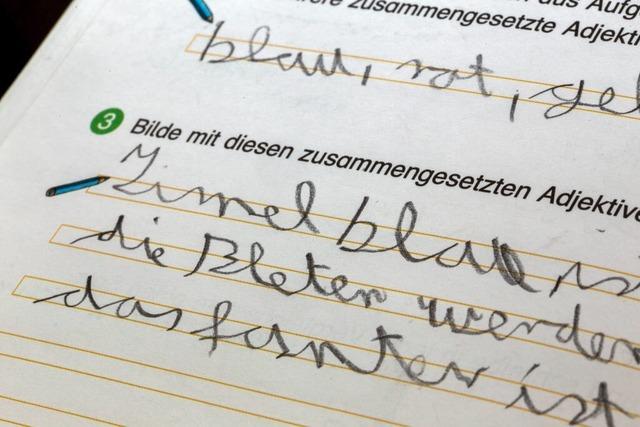 zusammengesetzte Adjekti
blau, rot, gel
3 Bilde mit diesen zusammengesetzten Adjektive
Himel blau is
die Bleter werden
das fanter ist